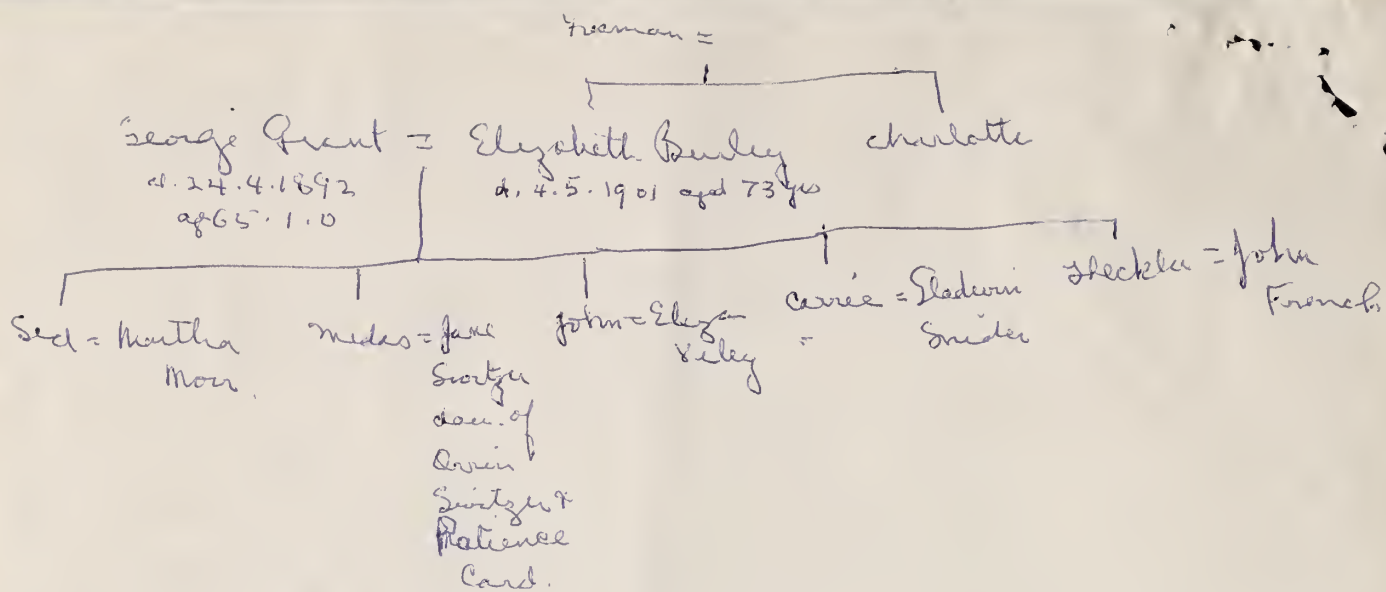 Freeman =
George Grant = Elizabeth Burley Charlotte
d. 24.4.1892 d. 4.5.1901 aged 73 yrs
ag 65.1.0
Sid = Martha
Midas = Jane
Switzer
dau. of
Orrin
Switzer &
Patience
Card.
John = Eliza
Carrie = Gladwin
=
Snider
= John
French